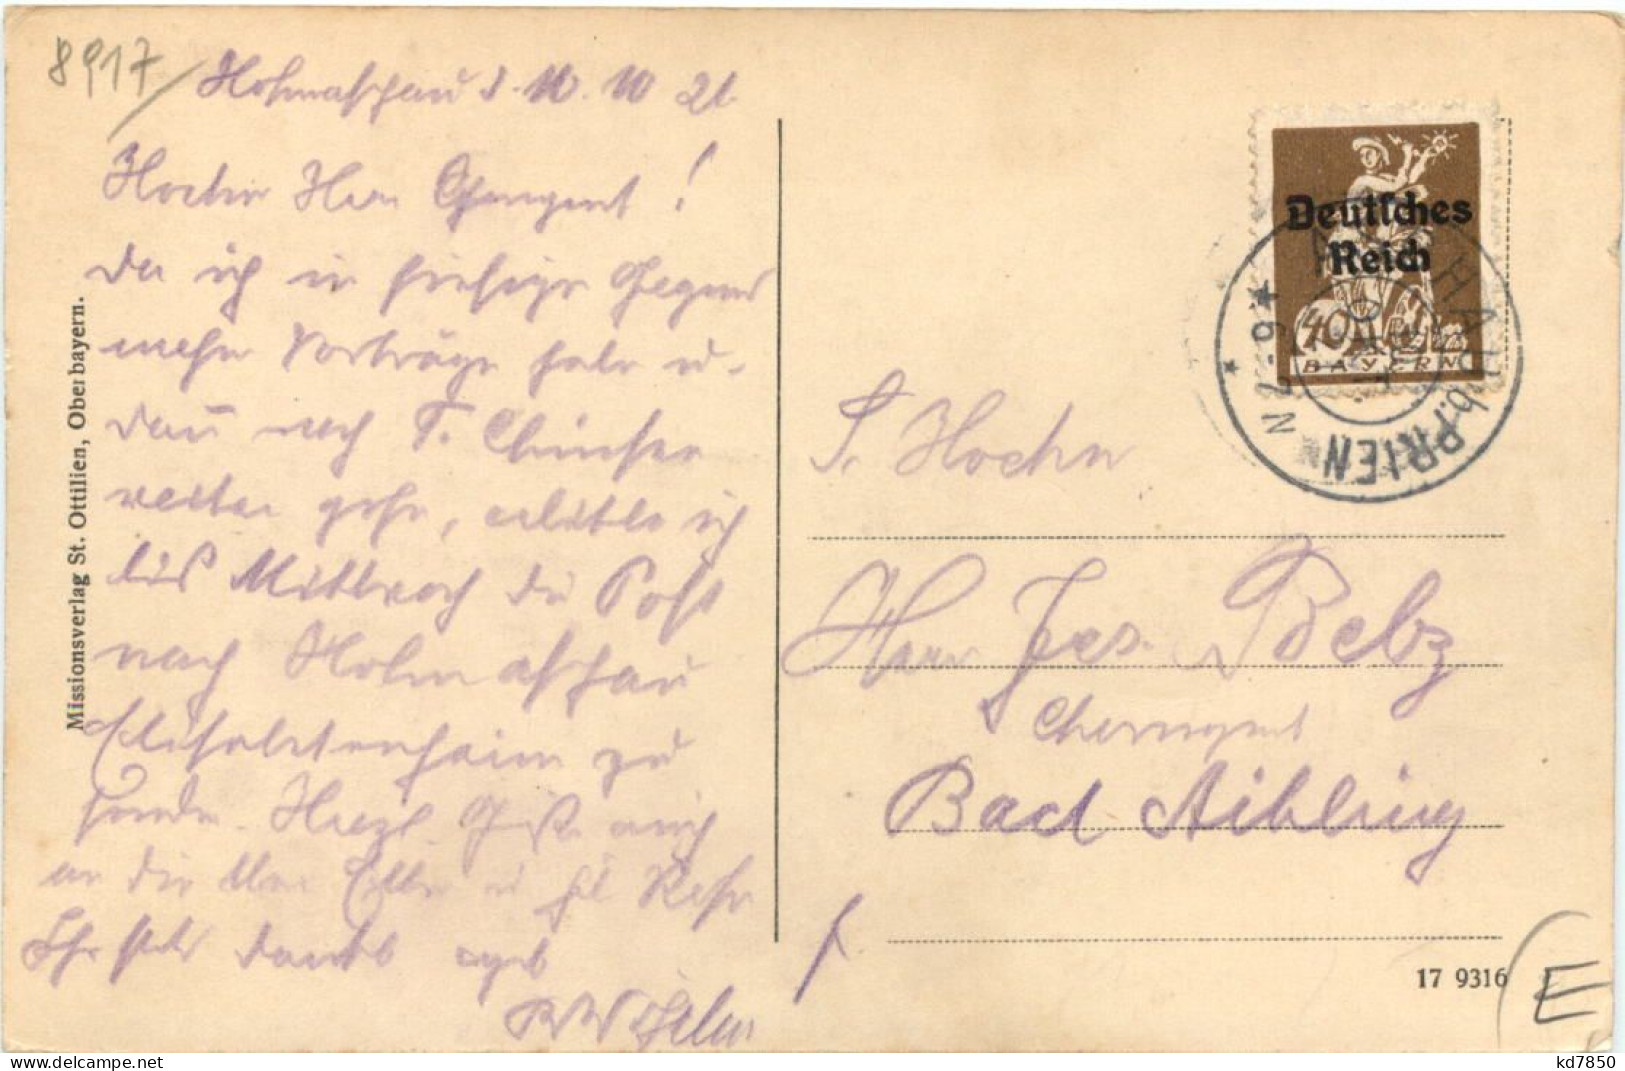 8917
Hohenaschau d. 10. 10 21.
Herr Chorregent!
Da ich in hiesiger Gegend
mehr Vorträge halte u.
dann nach
weiter gehe, erbitte ich
bis Mittwoch die Post
nach Hohenaschau
Elisabethenheim zu
senden. Herzl. Grüße auch
an die
Ihr stets dankb. ergeb.
Missionsverlag St. Ottilien, Oberbayern.
Deutsches
Reich
40
BAYERN
b. PRIEN
S. Hochw
Herrn Jos. Belz
Chorregent
Bad Aibling
17 9316
E
kd7850